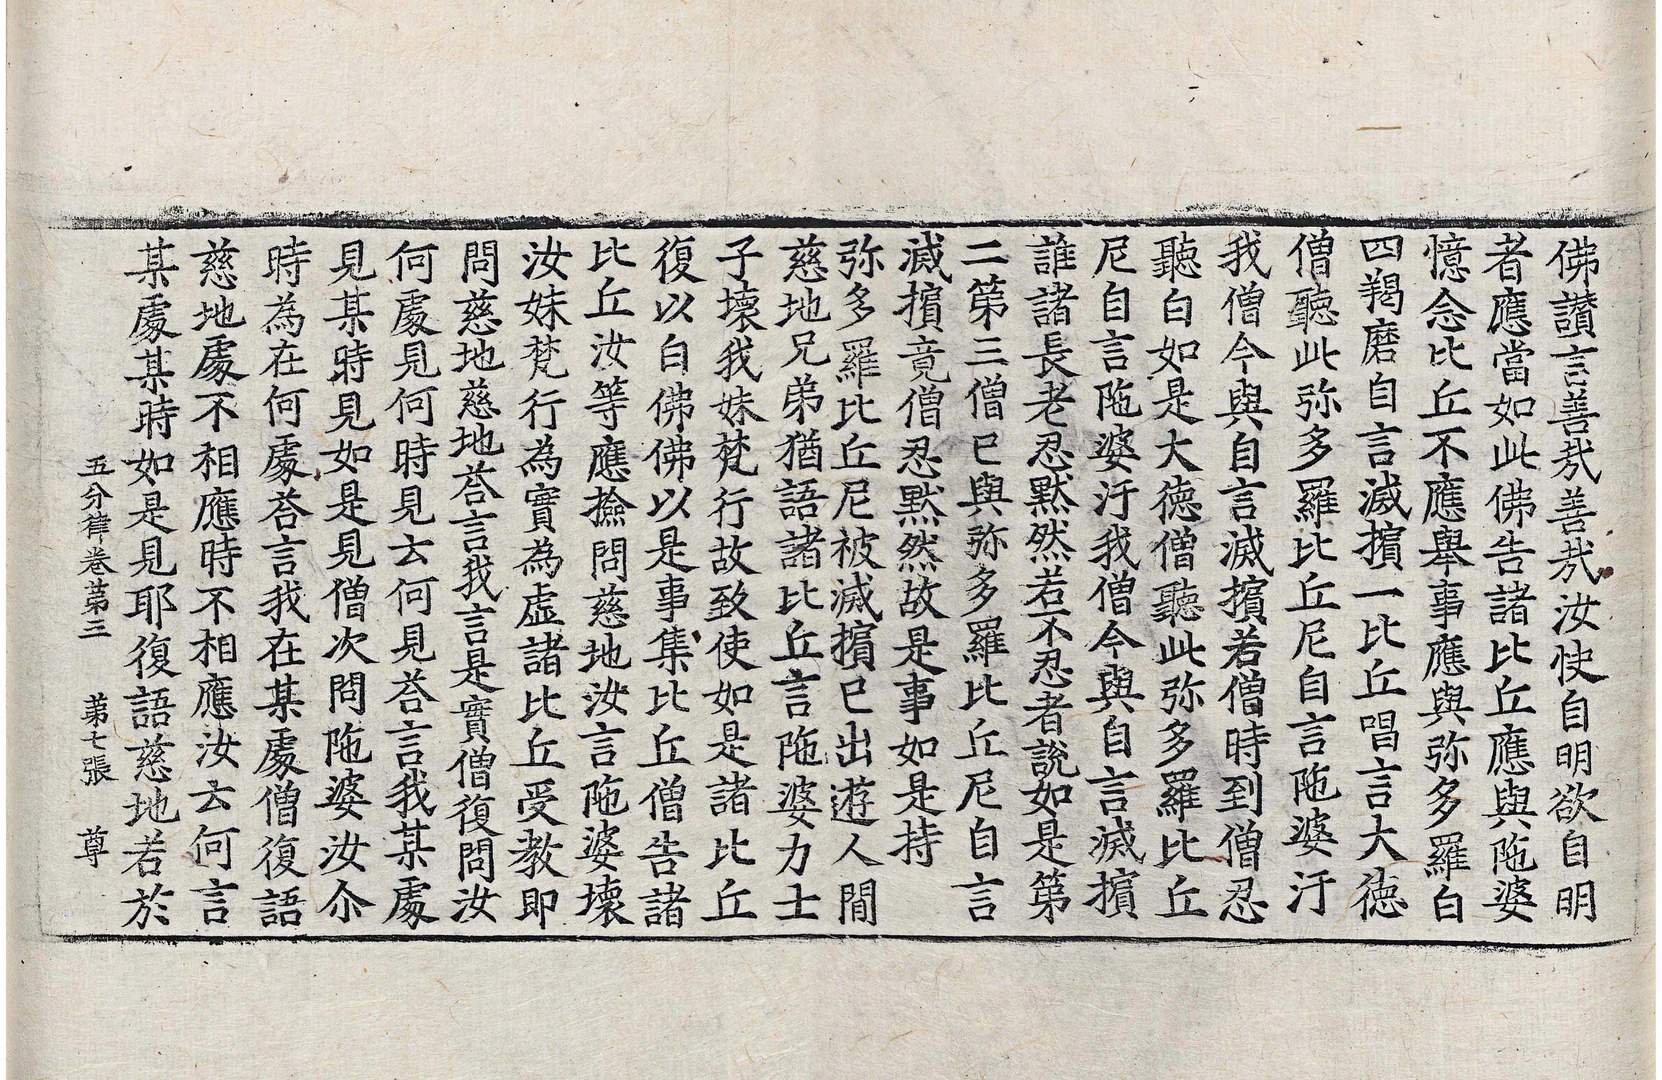 佛讃言善㢤善㢤汝快自明欲自明
者應當如此佛告諸比丘應與陁婆
憶念比丘不應舉事應與弥多羅白
四羯磨自言滅擯一比丘唱言大徳
僧聽此弥多羅比丘尼自言陁婆汙
我僧今與自言滅擯若僧時到僧忍
聽白如是大徳僧聽此弥多羅比丘
尼自言陁婆汙我僧今與自言滅擯
誰諸長老忍黙然若不忍者說如是第
二第三僧已與弥多羅比丘尼自言
滅擯竟僧忍黙然故是事如是持
弥多羅比丘尼被滅擯已出遊人間
慈地兄弟猶語諸比丘言陁婆力士
子壞我妹梵行故致使如是諸比丘
復以白佛佛以是事集比丘僧告諸
比丘汝等應撿問慈地汝言陁婆壞
汝妹梵行為實為虛諸比丘受教即
問慈地慈地荅言我言是實僧復問汝
何處見何時見云何見荅言我某處
見某時見如是見僧次問陁婆汝尒
時為在何處荅言我在某處僧復語
慈地處不相應時不相應汝云何言
某處某時如是見耶復語慈地若於
五分律卷第三 第七張 尊